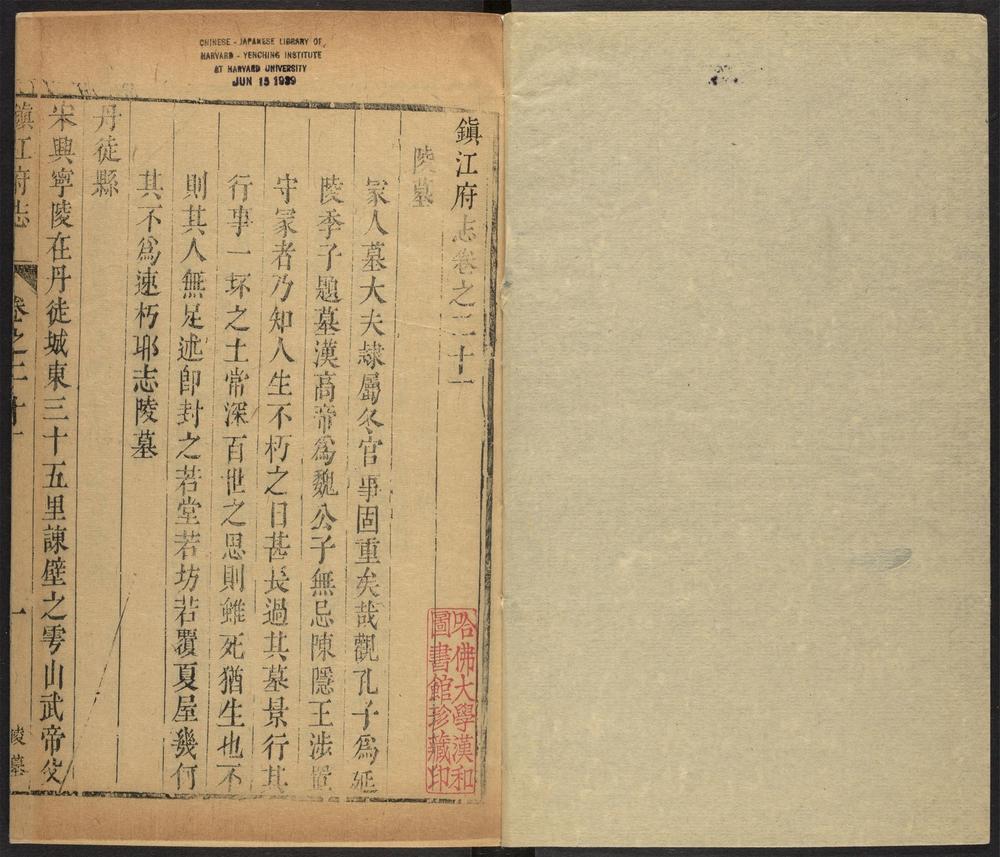 CHINESE - JAPANESE LIBRARY OF
HARVARD - YENCHING INSTITUTE
AT HARVARD UNIVERSITY
JUN 15 1939
鎮江府志卷之二十一
陵墓
冢人墓大夫隷屬冬官事固重矣哉觀孔子爲延
陵季子題墓漢高帝爲魏公子無忌陳隱王涉置
守冢者乃知人生不朽之日甚長過其墓景行其
行事一坏之土常深百世之思則雖死猶生也不
則其人無足述即封之若堂若坊若覆夏屋幾何
其不爲速朽耶志陵墓
丹徒縣
宋興寧陵在丹徒城東三十五里諫壁之雩山武帝父
鎮江府志 卷之二十一 一 陵墓
哈佛大學漢和
圖書館珍藏印